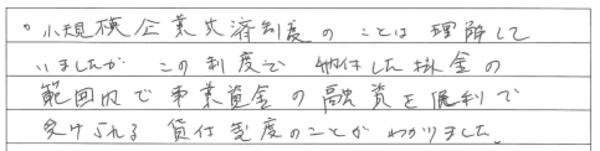 。小規模企業共済制度のことは理解して
いましたが この制度で 納付した掛金の
範囲内で事業資金の融資を低利で
受けられる 貸付制度のことが わかりました。